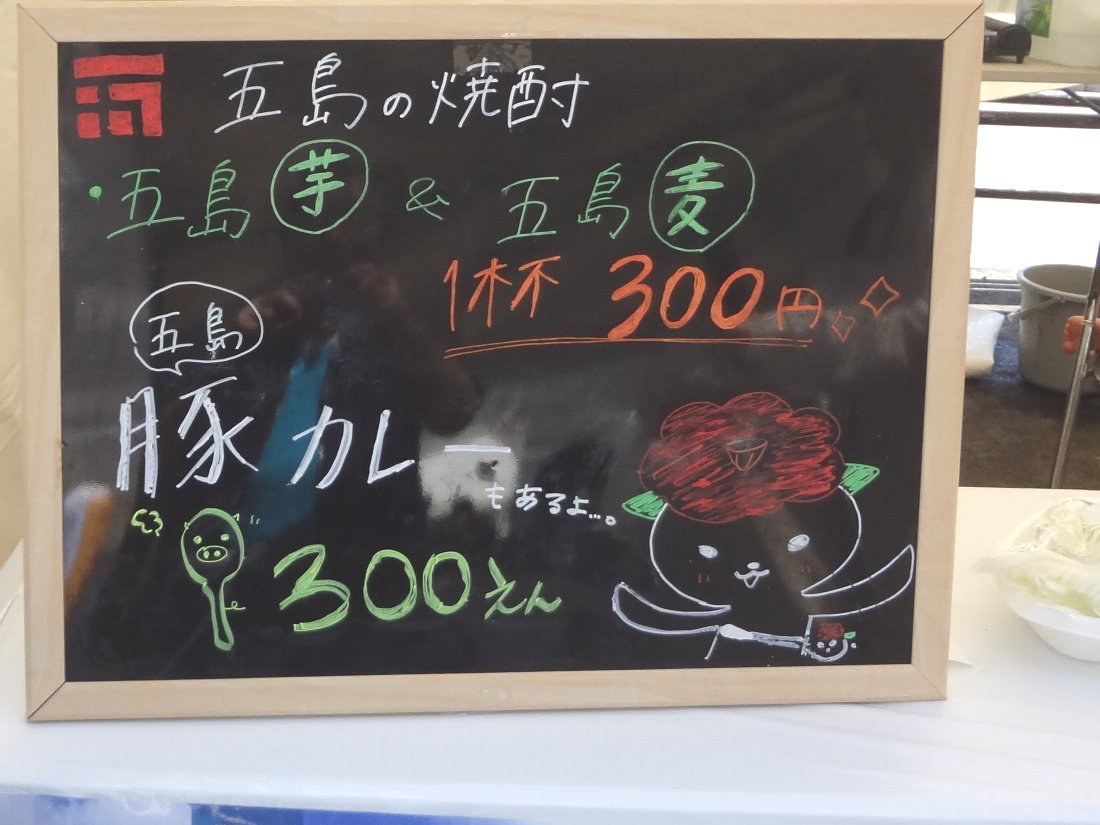 五島の焼酎
・五島芋 & 五島麦
1杯 300円
五島
豚カレー
もあるよ...。
300えん